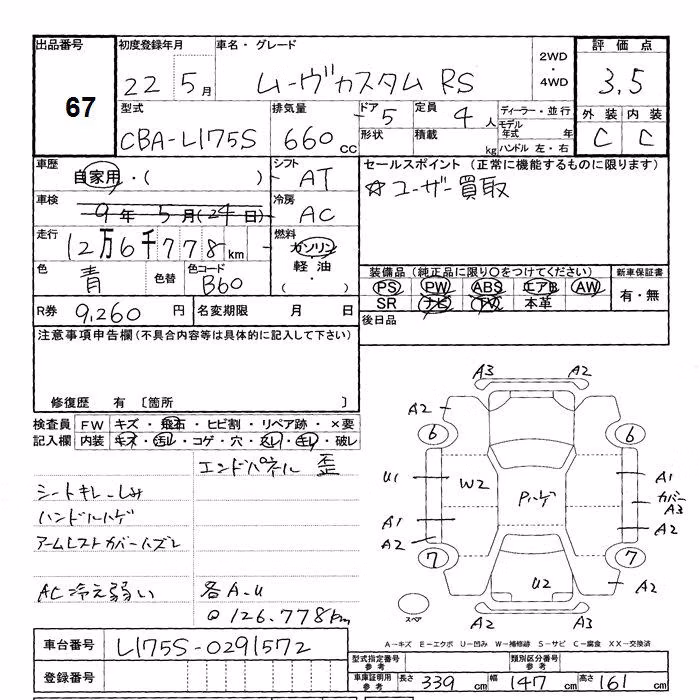 出品番号 初度登録年月 車名・グレード 2WD・4WD 評価点
67 22年 5月 ムーヴカスタム RS 3.5
型式 排気量 ドア 5 定員 4人 ディーラー・並行 外装 内装
CBA-L175S 660cc 形状 積載 kg モデル年式 年 C C
ハンドル 左・右
車歴 自家用・( ) シフト AT セールスポイント(正常に機能するものに限ります)
車検 9年 5月(24日) 冷房 AC ☆ユーザー買取
走行 12万6千778km 燃料 ガソリン・軽油・( )
色 青 色替 色コード B60 装備品(純正品に限り○をつけてください) 新車保証書
PS PW ABS エアB AW 有・無
SR ナビ TV 本革
R券 9,260円 名変期限 月 日 後日品
注意事項申告欄(不具合内容等は具体的に記入して下さい)
修復歴 有 〔箇所 〕
検査員 FW キズ・飛石・ヒビ割・リペア跡・×要
記入欄 内装 キズ・汚レ・コゲ・穴・スレ・キレ・破レ
エンドパネル 歪
シートキレ、しみ
ハンドルハゲ
アームレストカバーハズレ
AC冷え弱い 各A.U
@126.778km
A3 A2
A2 A2
6 6
U1 W2 Pハゲ A1
カバーA3
A1 A2
A2
7 7
U2 A2
スペア A2 A3
A-キズ E-エクボ U-凹み W-補修跡 S-サビ C-腐食 XX-交換済
車台番号 L175S-0291572
型式指定番号 参考 類別区分番号 参考
登録番号 車庫証明用 参考 長さ 339cm 幅 147cm 高さ 161cm